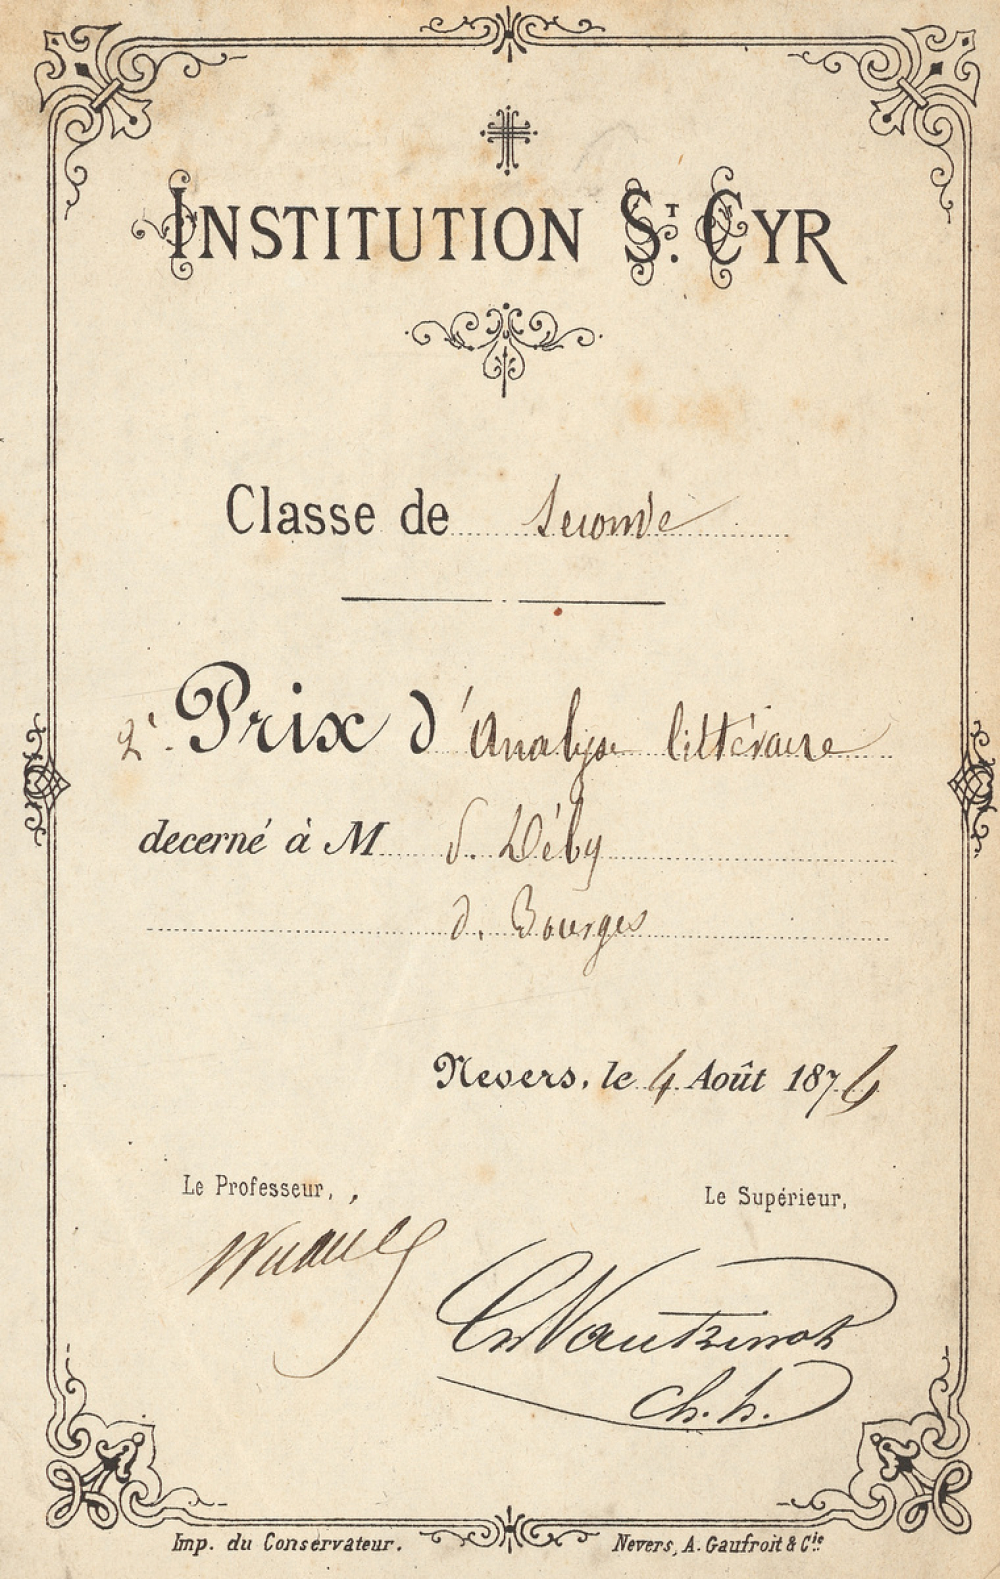 INSTITUTION ST. CYR
Classe de seconde
2e. Prix d'Analyse littéraire
decerné à M S. Déby
d. Bourges
Nevers, le 4 Août 1874
Le Professeur,
Le Supérieur,
ch. h.
Imp. du Conservateur.
Nevers, A. Gaufroit & Cie